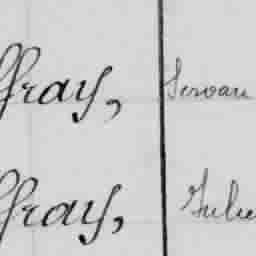 ffray, Servan
ffray, Julie